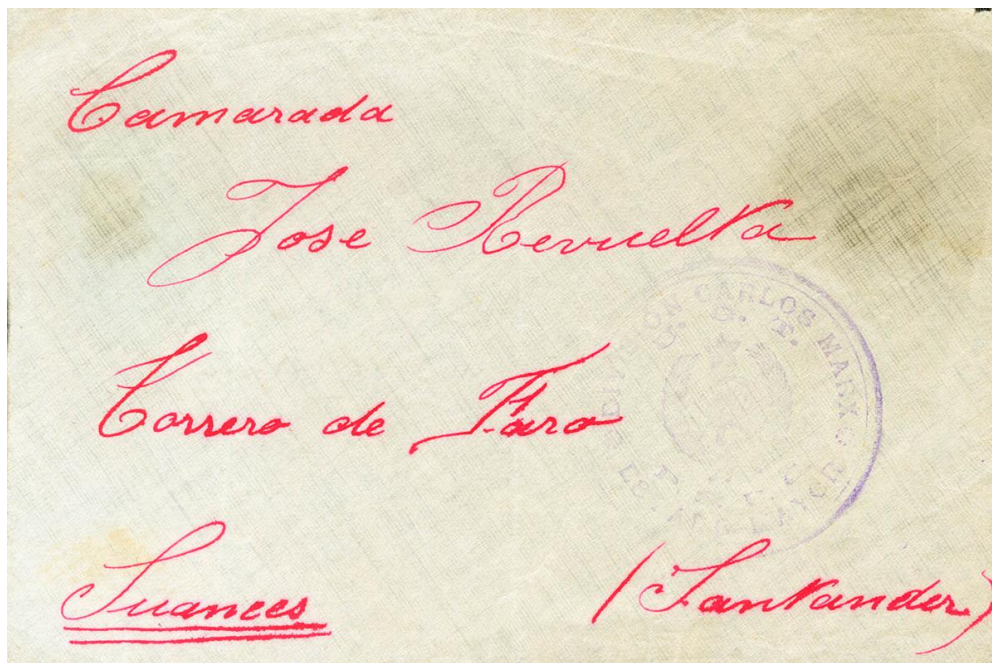 Camarada
Jose Revuelta
Torrero de Faro
Suances
(Santander)
DIVISION CARLOS MARX
U. G. T.
P. S. U.
ESTADO MAYOR